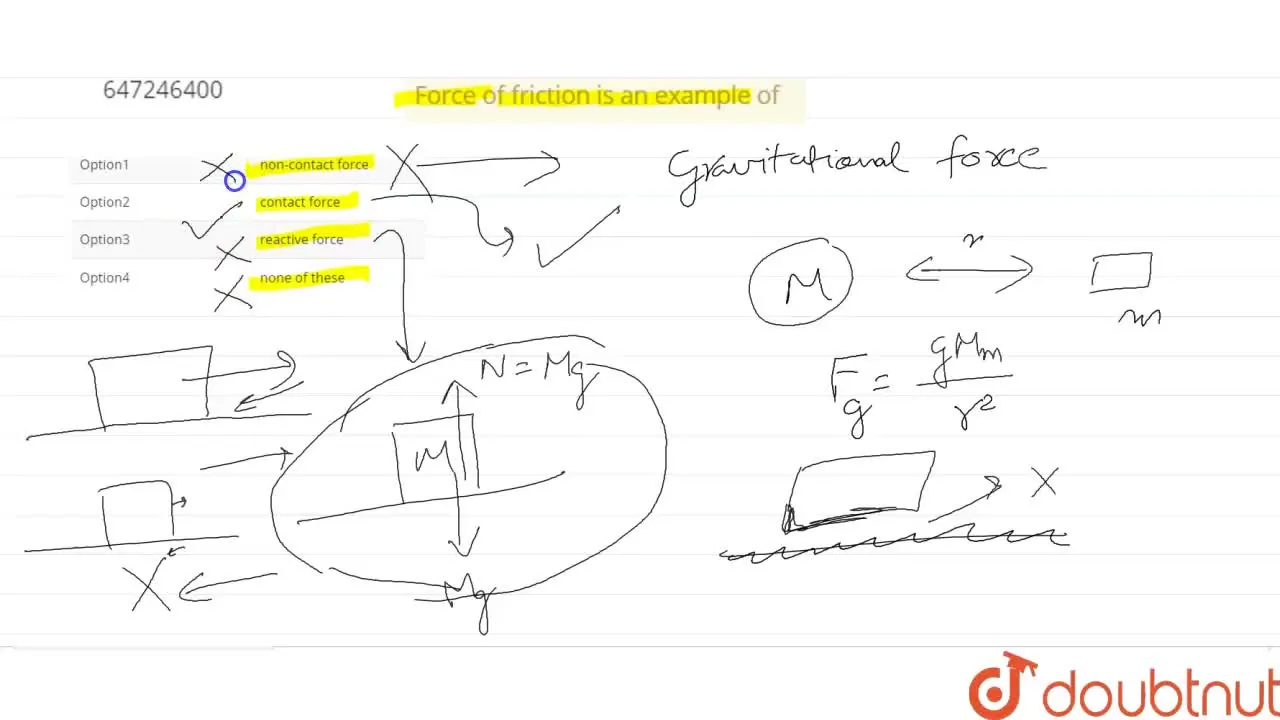 647246400
Force of friction is an example of
Option1 non-contact force
Gravitational force
Option2 contact force
Option3 reactive force
Option4 none of these
r
M
m
N = Mg
Fg = gMm / r²
M
X
X
Mg
doubtnut